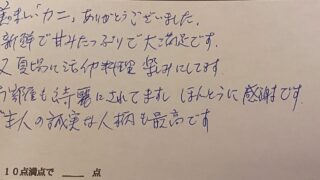 美味しい「カニ」ありがとうございました。
新鮮で甘みたっぷりで大満足です。
又夏場に活イカ料理 楽みにしてます。
お部屋も綺麗にされてますし ほんとうに感謝です。
主人の誠実な人柄も最高です
10点満点で 点